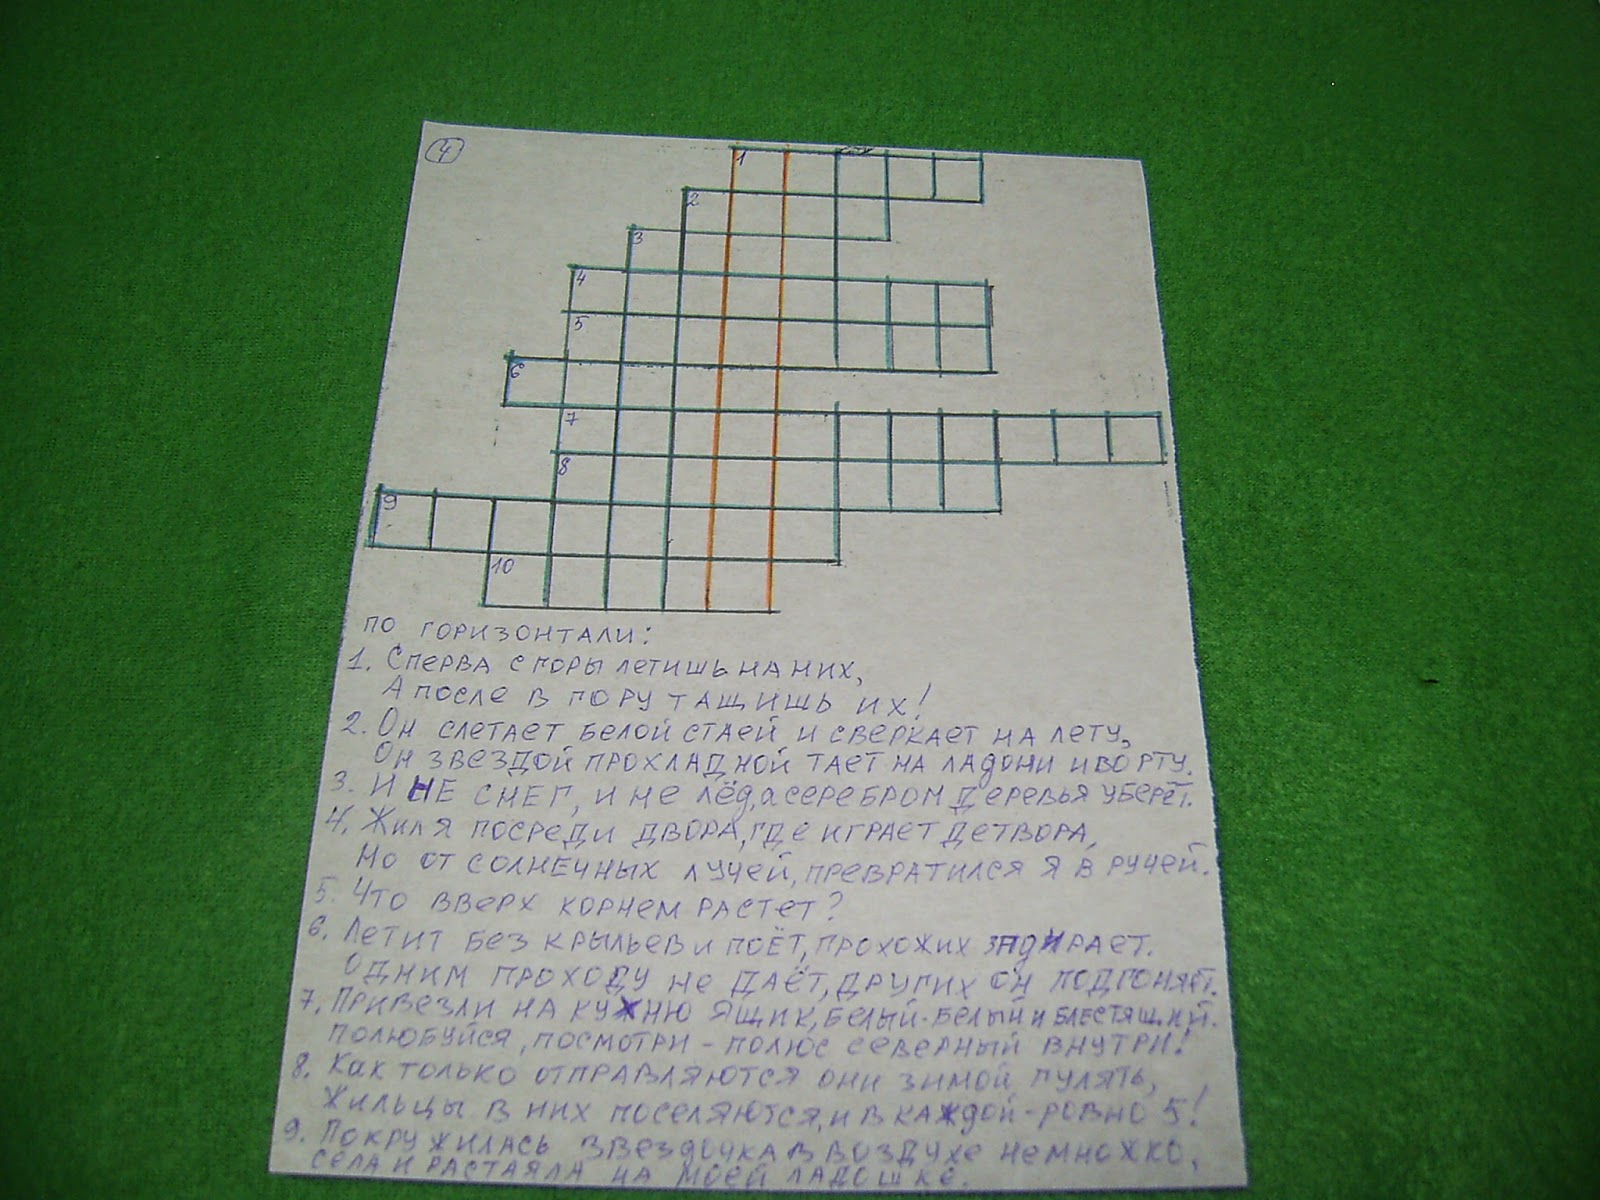 4
1
2
3
4
5
6
7
8
9
10
ПО ГОРИЗОНТАЛИ:
1. СПЕРВА С ГОРЫ ЛЕТИШЬ НА НИХ,
А ПОСЛЕ В ГОРУ ТАЩИШЬ ИХ!
2. ОН СЛЕТАЕТ БЕЛОЙ СТАЕЙ И СВЕРКАЕТ НА ЛЕТУ,
ОН ЗВЕЗДОЙ ПРОХЛАДНОЙ ТАЕТ НА ЛАДОНИ И ВО РТУ.
3. И НЕ СНЕГ, И НЕ ЛЁД, А СЕРЕБРОМ ДЕРЕВЬЯ УБЕРЁТ.
4. ЖИЛ Я ПОСРЕДИ ДВОРА, ГДЕ ИГРАЕТ ДЕТВОРА,
НО ОТ СОЛНЕЧНЫХ ЛУЧЕЙ, ПРЕВРАТИЛСЯ Я В РУЧЕЙ.
5. ЧТО ВВЕРХ КОРНЕМ РАСТЕТ?
6. ЛЕТИТ БЕЗ КРЫЛЬЕВ И ПОЁТ, ПРОХОЖИХ ЗАДИРАЕТ.
ОДНИМ ПРОХОДУ НЕ ДАЁТ, ДРУГИХ ОН ПОДГОНЯЕТ.
7. ПРИВЕЗЛИ НА КУХНЮ ЯЩИК, БЕЛЫЙ-БЕЛЫЙ И БЛЕСТЯЩИЙ.
ПОЛЮБУЙСЯ, ПОСМОТРИ - ПОЛЮС СЕВЕРНЫЙ ВНУТРИ!
8. КАК ТОЛЬКО ОТПРАВЛЯЮТСЯ ОНИ ЗИМОЙ ГУЛЯТЬ,
ЖИЛЬЦЫ В НИХ ПОСЕЛЯЮТСЯ, И В КАЖДОЙ - РОВНО 5!
9. ПОКРУЖИЛАСЬ ЗВЕЗДОЧКА В ВОЗДУХЕ НЕМНОЖКО,
СЕЛА И РАСТАЯЛА НА МОЕЙ ЛАДОШКЕ.